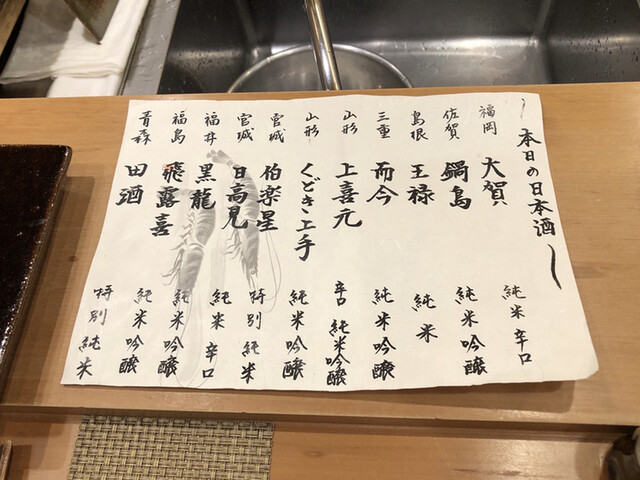 本日の日本酒
福岡 大賀 純米 辛口
佐賀 鍋島 純米吟醸
島根 王禄 純米
三重 而今 純米吟醸
山形 上喜元 辛口 純米吟醸
山形 くどき上手 純米吟醸
宮城 伯楽星 特別純米
宮城 日高見 純米 辛口
福井 黒龍 純米吟醸
福島 飛露喜 純米吟醸
青森 田酒 特別純米